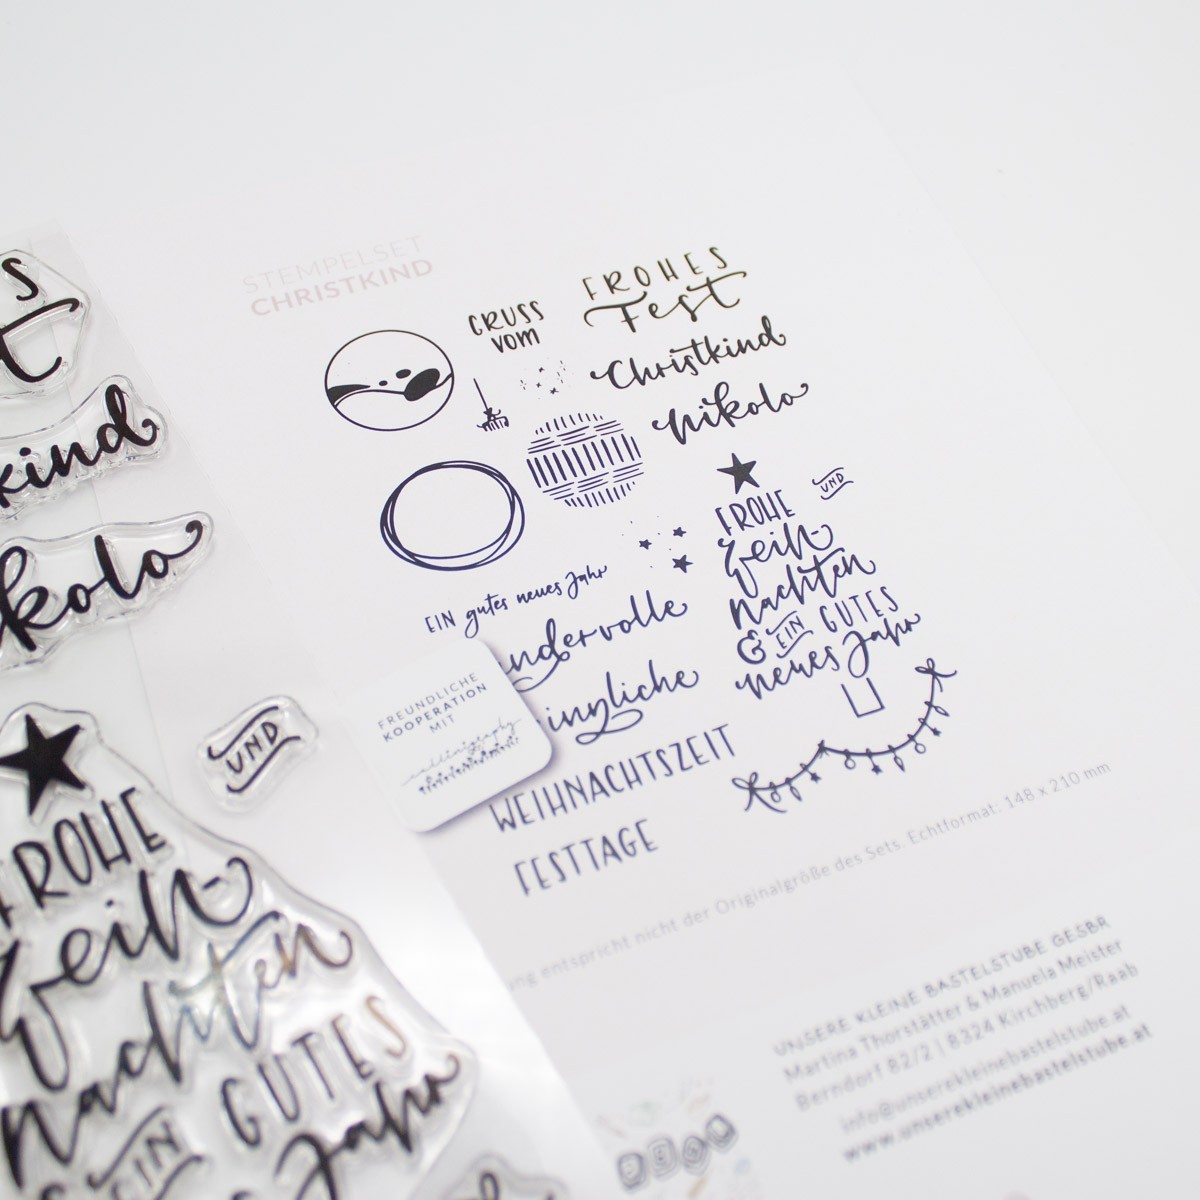 STEMPELSET
CHRISTKIND
GRUSS
VOM
FROHES
Fest
Christkind
Nikolo
UND
FROHE
Weih-
nachten
& EIN GUTES
neues Jahr
EIN gutes neues Jahr
WEIHNACHTSZEIT
FESTTAGE
FREUNDLICHE
KOOPERATION
MIT
entspricht nicht der Originalgröße des Sets. Echtformat: 148 x 210 mm
UNSERE KLEINE BASTELSTUBE GESBR
Martina Thorstätter & Manuela Meister
Berndorf 82/2 | 8324 Kirchberg/Raab
info@unserekleinebastelstube.at
www.unserekleinebastelstube.at
s
t
kind
kolo
UND
FROHE
Weih-
nachten
EIN GUTES
Jahr